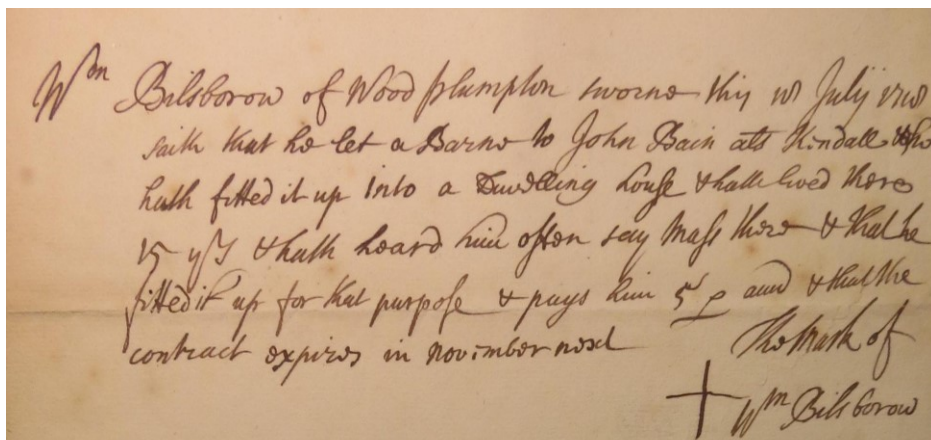 Wm Bilsborow of Wood plumpton sworne this 18 July 1718
saith that he let a Barne to John Bain als Kendall who
hath fitted it up into a Dwelling house & hath lived there
15 yrs & hath heard him often say Mass there & that he
fitted it up for that purpose & pays him 5 p ann & that the
contract expires in November next The Mark of
Wm Bilsborow